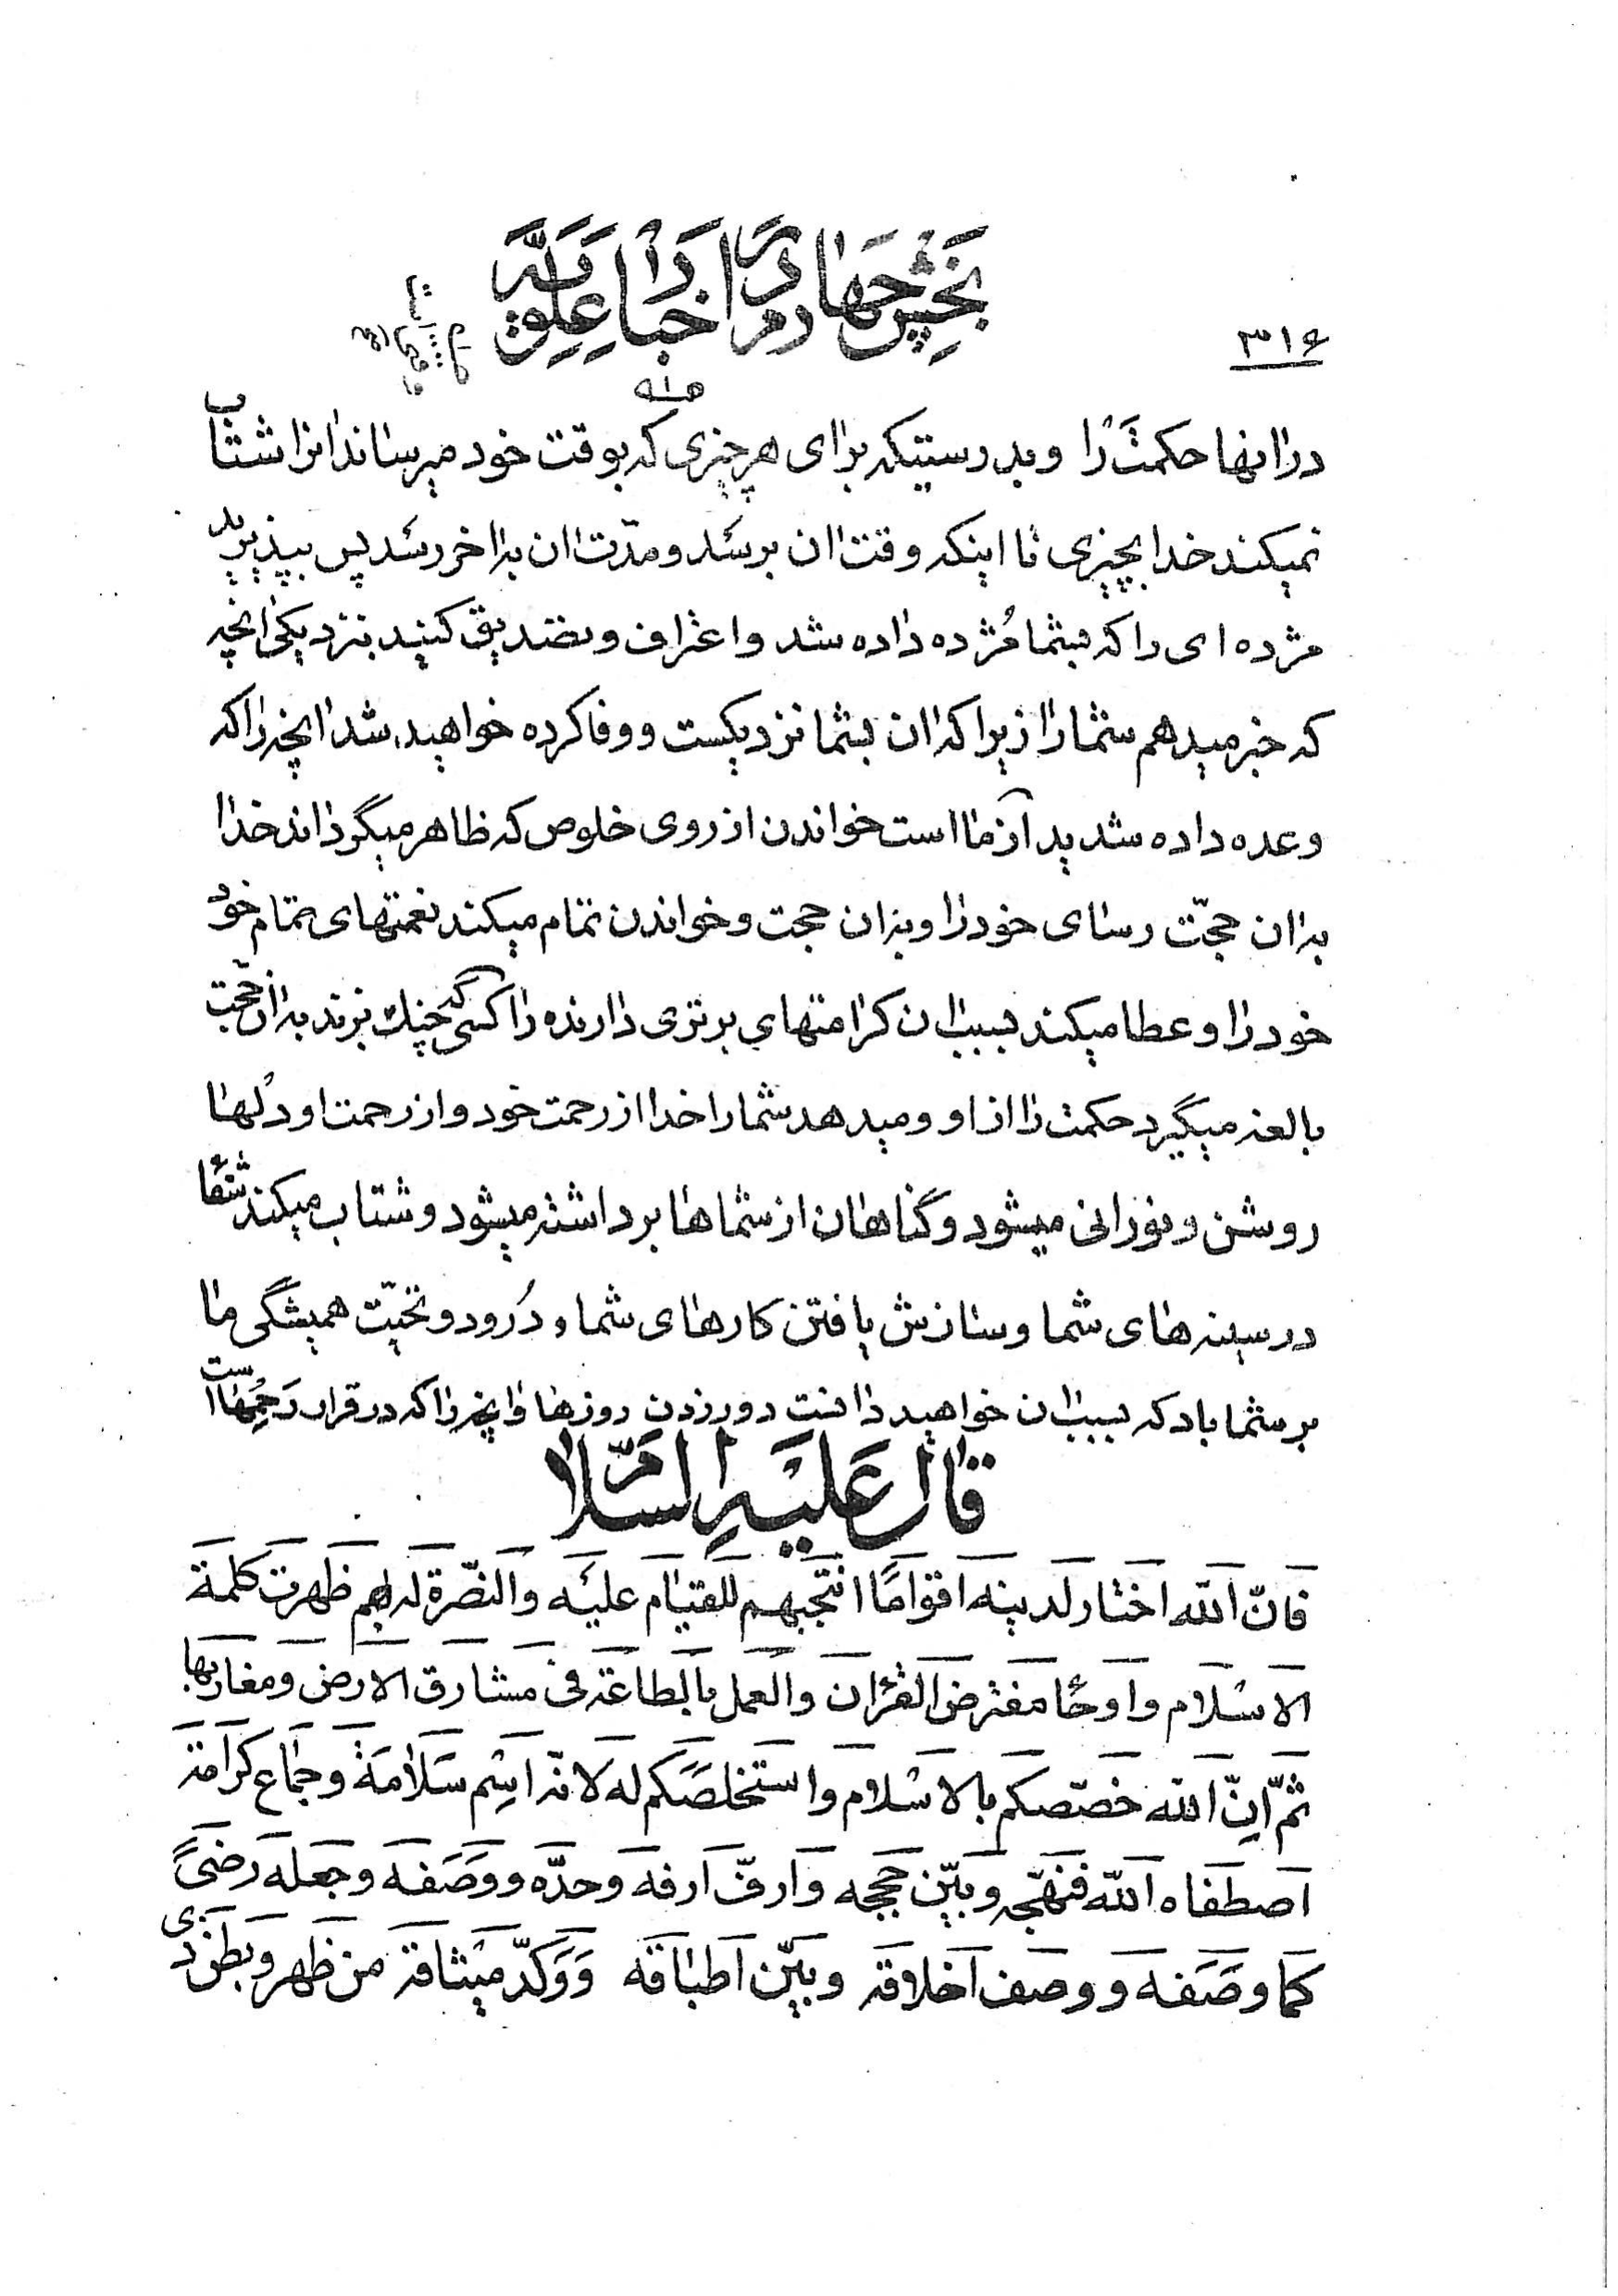 ۳۱۶
بخش چهارم در اخبار علویّه
در انها حکمت را و بدرستیکه برای هر چیزی که بوقت خود میرساند انرا شتاب
نمیکند خدا بچیزی تا اینکه وقت ان برسد و مدّت ان به اخر رسد پس بپذیرید
مژده ای را که بشما مُژده داده شد و اعتراف و تصدیق کنید بنزدیکی انچه
که خبر میدهم شما را زیرا که ان بشما نزدیکست و وفا کرده خواهید شد انچه را که
وعده داده شدید آز ما است خواندن از روی خلوص که ظاهر میگرداند خدا
به ان حجّت رسای خود را و به ان حجت و خواندن تمام میکند نعمتهای تمام خود
خود را و عطا میکند بسبب ان کرامتهای برتری دارنده را کسی که چنك بزند به ان حجت
بالغه میگیرد حکمت را از او و میدهد شما را خدا از رحمت خود و از رحمت او دلها
روشن و نورانی میشود و گناهان از شماها برداشته میشود و شتاب میکند شفا
در سینه های شما و سازش یافتن کارهای شما و دُرود و تحیّت همیشگی ما
بر شما باد که بسبب ان خواهید دانست دور زدن روزها و انچه را که در قرار رَحِمها است
قال عَلَیهِ السَّلام
فَانّ اللّه اختار لدینه اقوامًا انتجبهم للقیام علیه والنصّرة له بهم ظهرت کلمة
الاسلام و اوحا مفترض القران والعمل بالطاعة فی مشارق الارض ومغاربها
ثمّ انّ اللّه خصّصکم بالاسلام واستخلصکم له لانه اسم سَلامَة وجماع کرامة
اصطفاه اللّه فنهّجه وبیّن حججه وارفّ ارفه وحدّه ووَصَفه وجعله رضیً
کما وصَفه ووصف اخلاقه وبیّن اطباقه وَوَکدّ میثاقه من ظهر وبطن ذی